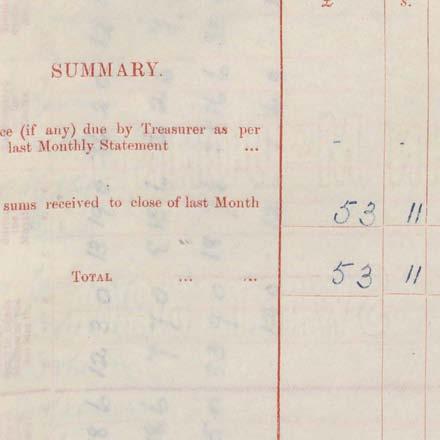 £ s.
SUMMARY.
ce (if any) due by Treasurer as per
last Monthly Statement ... - -
sums received to close of last Month 53 11
TOTAL ... ... 53 11